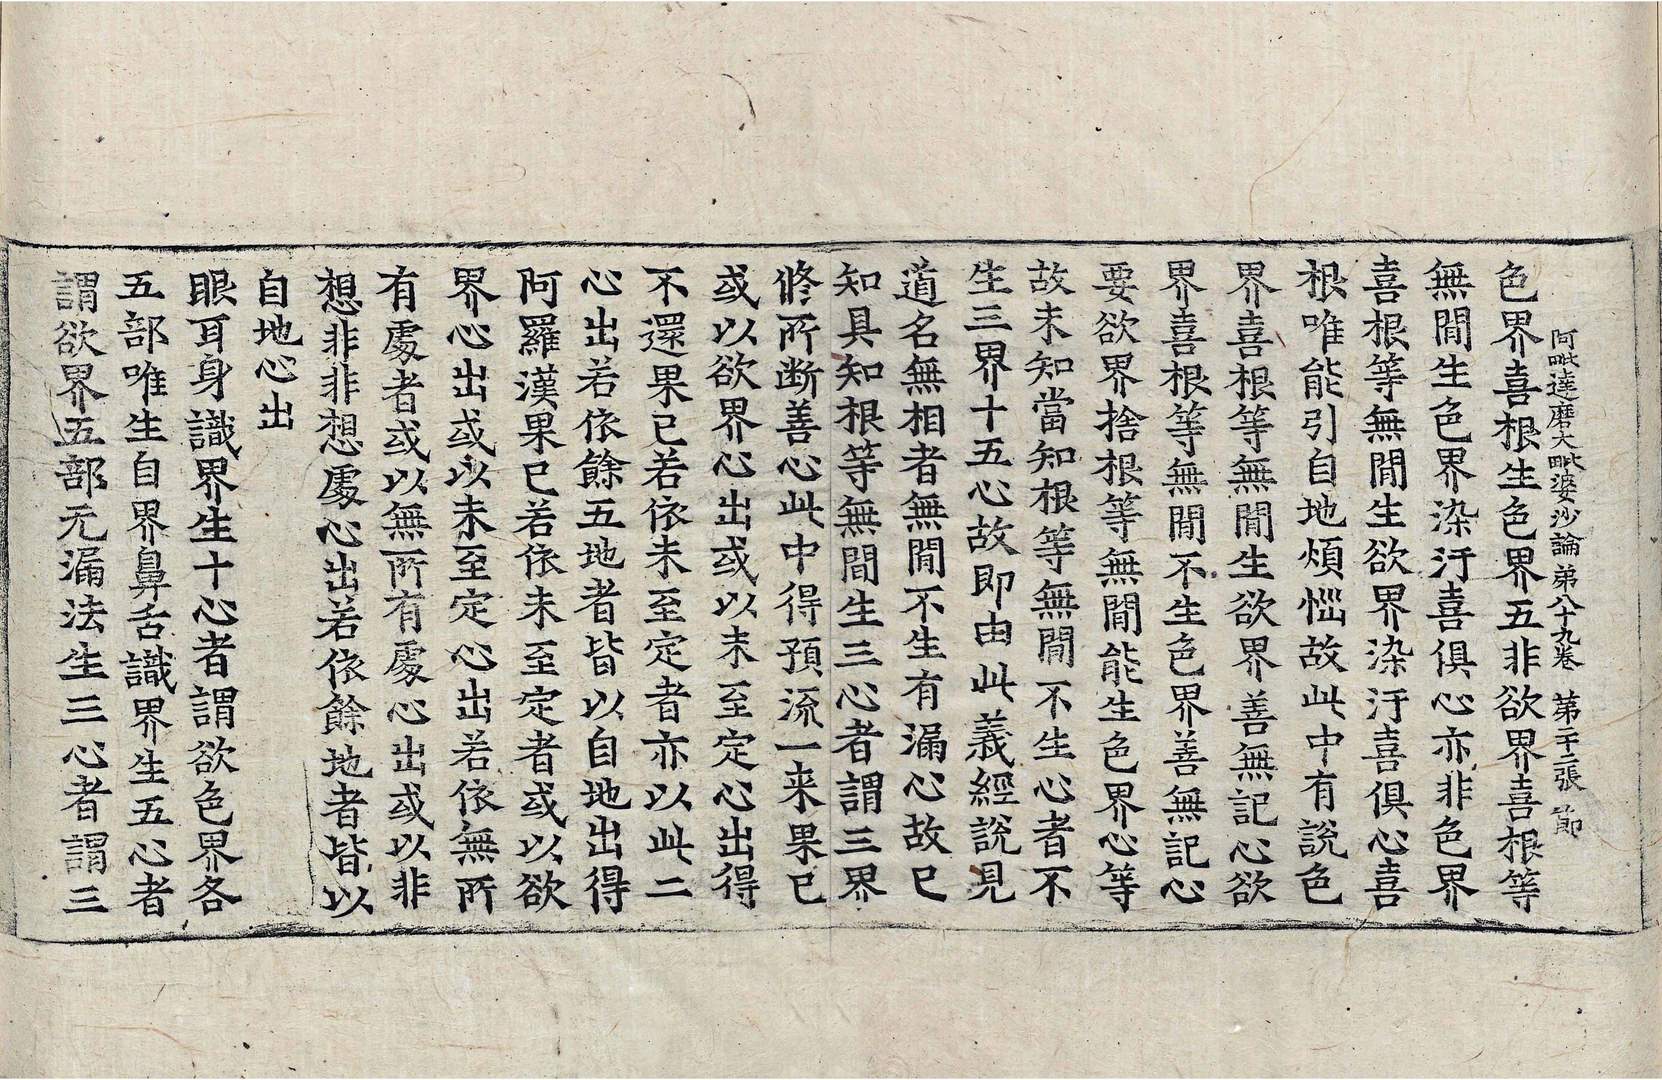 阿毗達磨大毗婆沙論 第八十九卷 第二十二張 節
色界喜根生色界五非欲界喜根等
無閒生色界染汙喜俱心亦非色界
喜根等無閒生欲界染汙喜俱心喜
根唯能引自地煩惱故此中有說色
界喜根等無閒生欲界善無記心欲
界喜根等無閒不生色界善無記心
要欲界捨根等無閒能生色界心等
故未知當知根等無閒不生心者不
生三界十五心故即由此義經說見
道名無相者無閒不生有漏心故已
知具知根等無間生三心者謂三界
修所断善心此中得預流一来果已
或以欲界心出或以未至定心出得
不還果已若依未至定者亦以此二
心出若依餘五地者皆以自地出得
阿羅漢果已若依未至定者或以欲
界心出或以未至定心出若依無所
有處者或以無所有處心出或以非
想非非想處心出若依餘地者皆以
自地心出
眼耳身識界生十心者謂欲色界各
五部唯生自界鼻舌識界生五心者
謂欲界五部无漏法生三心者謂三